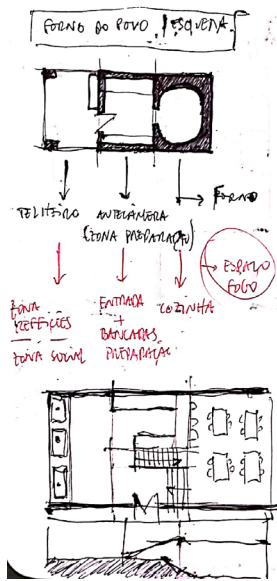 FORNO DO POVO / ESQUEMA
TELHEIRO
ANTECÂMERA
(ZONA PREPARAÇÃO)
FORNO
ESPAÇO
FOGO
ZONA
REFEIÇÕES
ZONA SOCIAL
ENTRADA
+
BANCADAS
PREPARAÇÃO
COZINHA